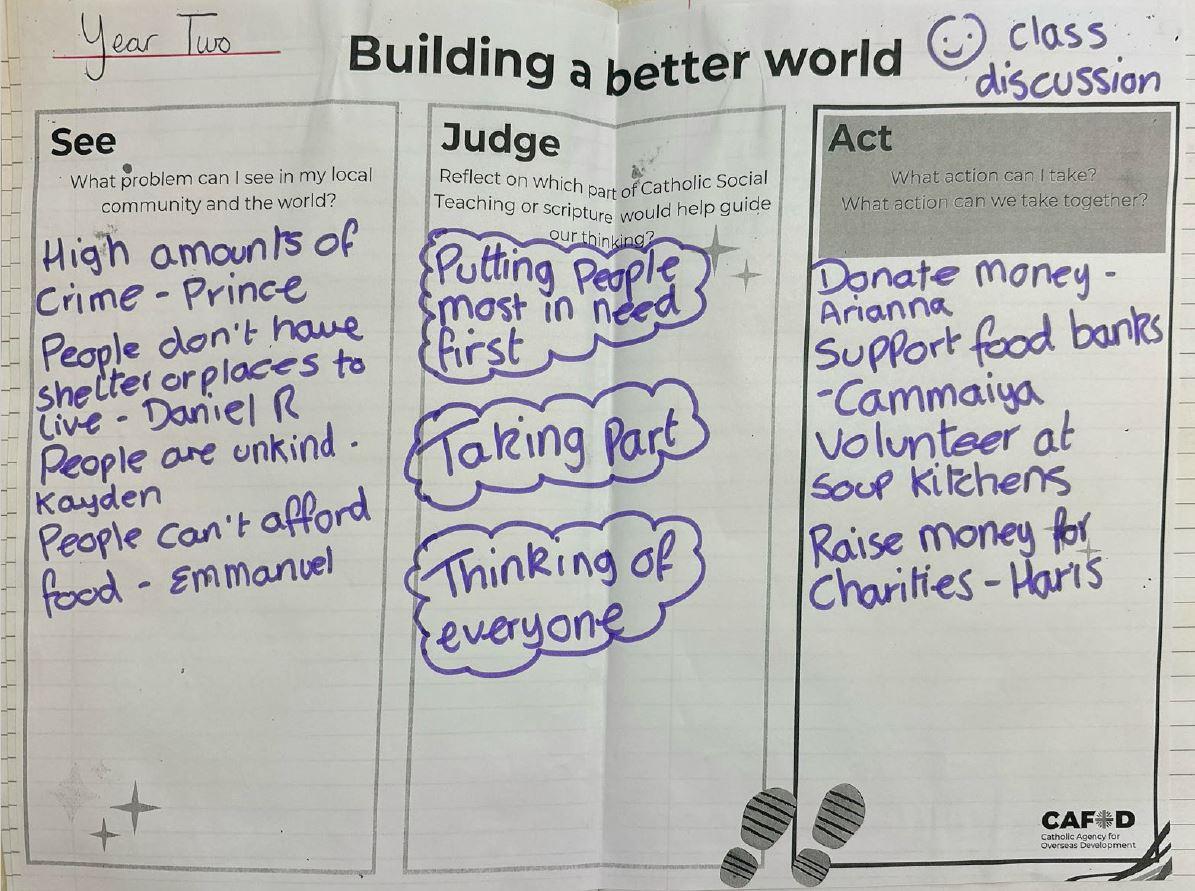 Year Two
Building a better world
class
discussion
See
What problem can I see in my local
community and the world?
High amounts of
Crime - Prince
People don't have
shelter or places to
live - Daniel R
People are unkind -
Kayden
People can't afford
food - Emmanuel
Judge
Reflect on which part of Catholic Social
Teaching or scripture would help guide
our thinking?
Putting People
most in need
first
Taking Part
Thinking of
everyone
Act
What action can I take?
What action can we take together?
Donate money -
Arianna
Support food banks
- Cammaiya
Volunteer at
soup kitchens
Raise money for
Charities - Haris
CAFOD
Catholic Agency for
Overseas Development